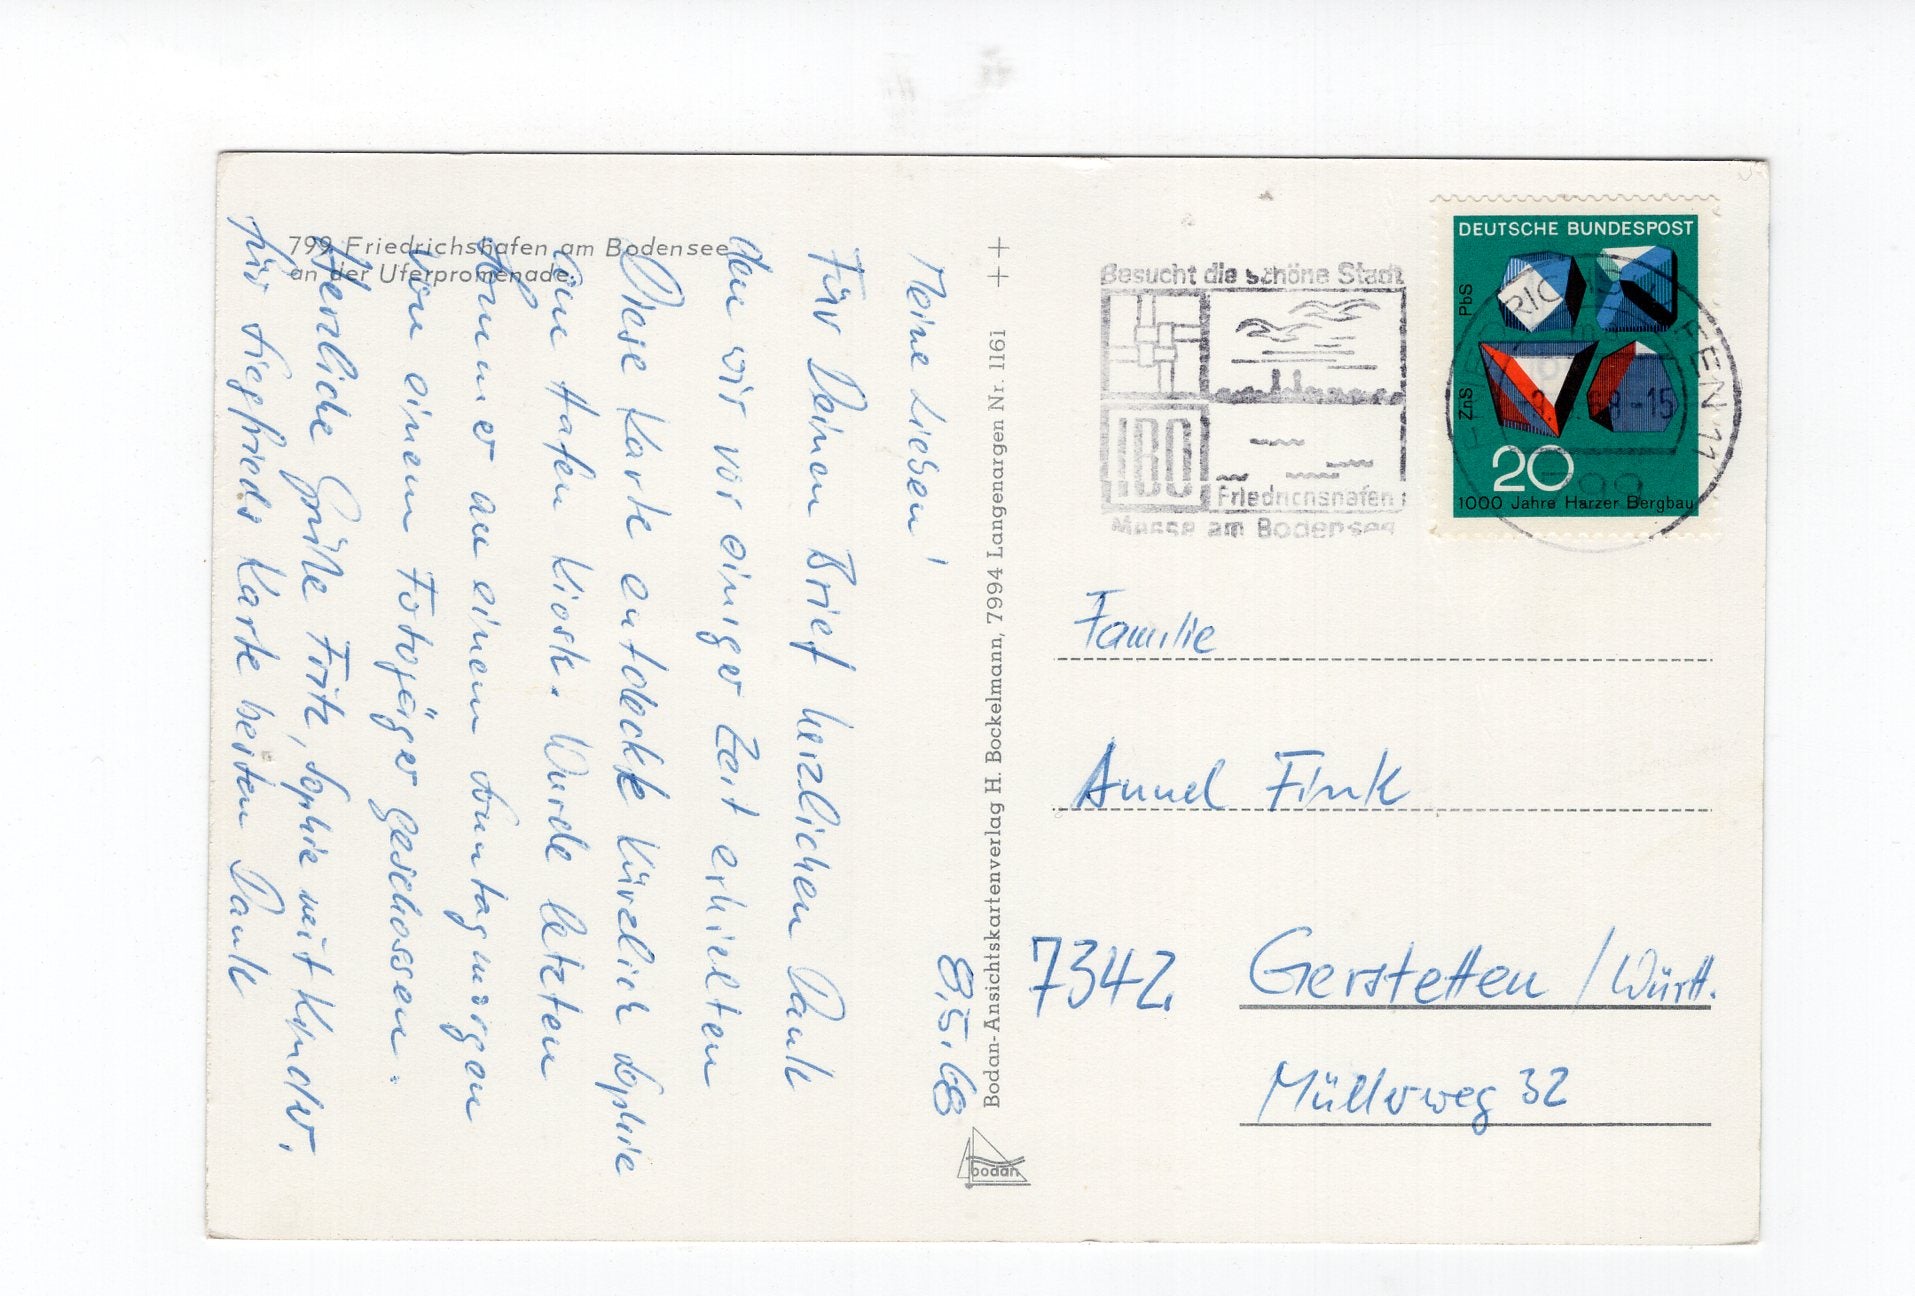 799 Friedrichshafen am Bodensee
an der Uferpromenade
8.5.68
Meine Lieben!
Für Deinen Brief herzlichen Dank
den wir vor einiger Zeit erhielten
Diese Karte entdeckte kürzlich Sophie
im Hafen Kiosk. Wurde letzten
Sommer an einem Sonntagmorgen
von einem Fotojäger geschossen.
Herzliche Grüße Fritz, Sophie mit Kinder.
für Siegfrieds Karte besten Dank
++
Bodan-Ansichtskartenverlag H. Bockelmann, 7994 Langenargen Nr. 1161
bodan
Besucht die schöne Stadt
IBO
Friedrichshafen
Messe am Bodensee
DEUTSCHE BUNDESPOST
PbS
ZnS
20
1000 Jahre Harzer Bergbau
FRIEDRICHSHAFEN 11
799
Familie
Annel Fink
7342 Gerstetten / Württ.
Müllerweg 32